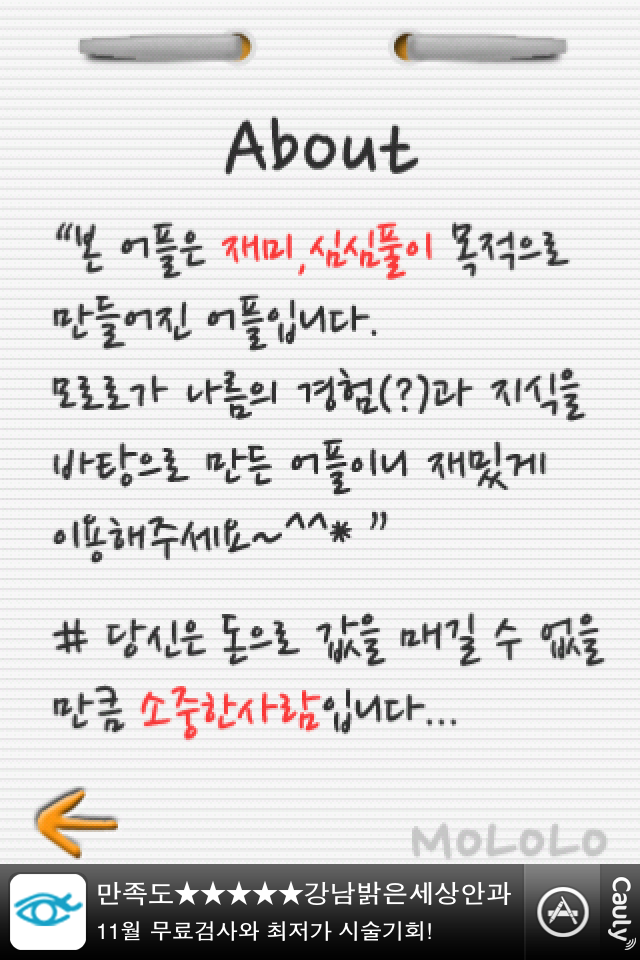 About
"본 어플은 재미,심심풀이 목적으로
만들어진 어플입니다.
모로로가 나름의 경험(?)과 지식을
바탕으로 만든 어플이니 재밌게
이용해주세요~^^* "
# 당신은 돈으로 값을 매길 수 없을
만큼 소중한사람입니다...
MoLoLo
만족도★★★★★강남밝은세상안과
11월 무료검사와 최저가 시술기회!
Cauly